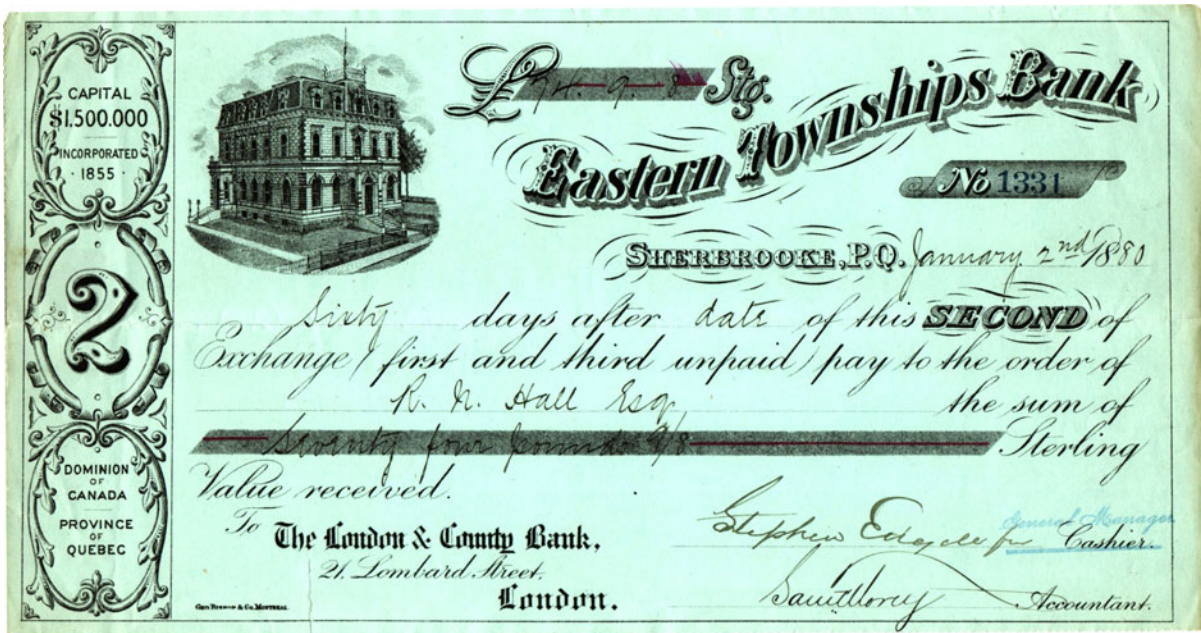 CAPITAL
$1.500.000
INCORPORATED
· 1855 ·
2
DOMINION
OF
CANADA
PROVINCE
OF
QUEBEC
£ 74. 9. 8 Stg.
Eastern Townships Bank
No 1331
SHERBROOKE, P.Q. January 2nd 1880
Sixty days after date of this SECOND of
Exchange (first and third unpaid) pay to the order of
R. N. Hall Esq, the sum of
Seventy four pounds 9/8 Sterling
Value received.
To The London & County Bank,
21. Lombard Street.
London.
Stephen General Manager
Cashier.
Accountant.
Geo Bishop & Co. Montreal.